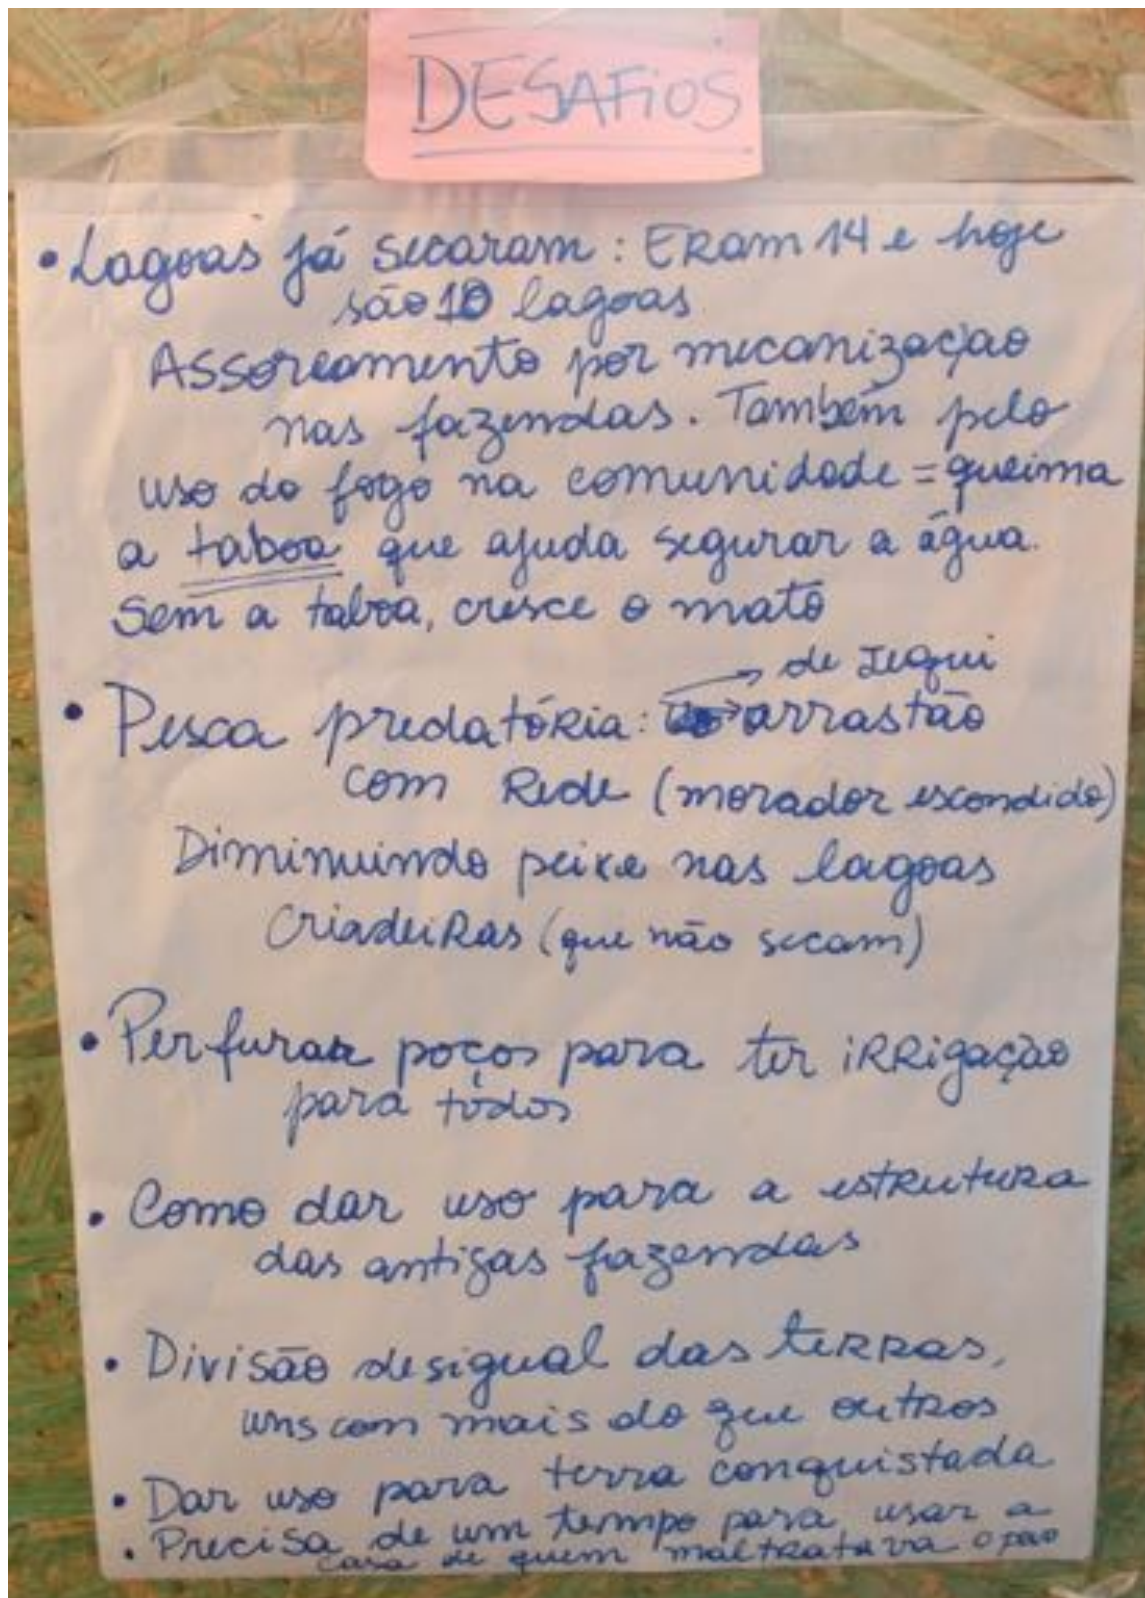 DESAFIOS
• Lagoas já secaram: ERam 14 e hoje
são 10 lagoas
Assoreamento por mecanização
nas fazendas. Também pelo
uso do fogo na comunidade = queima
a taboa que ajuda segurar a água.
Sem a taboa, cresce o mato
→ de Jequi
• Pesca predatória: → arrastão
com Rede (morador escondido)
Diminuindo peixe nas lagoas
CriadeiRas (que não secam)
• Perfurar poços para ter iRRigação
para todos
• Como dar uso para a estRutuRa
das antigas fazendas
• Divisão desigual das teRRas,
uns com mais do que outRos
• Dar uso para terra conquistada
• Precisa de um tempo para usar a
casa de quem maltRatava o